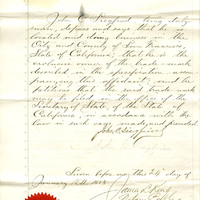 John C. Siegfried being duly
sworn, deposes and says that he is
located and doing business in the
City and County of San Francisco,
State of California; that he is the
exclusive owner of the trade mark
described in the specification accom-
panying this affidavit; and he
petitions that the said trade mark
may be filed in the office of the
Secretary of State, of the State of
California, in accordance with the
law in such case made and provided.
John C. Siegfried
Sworn before me this 24th day of
January
James L. King